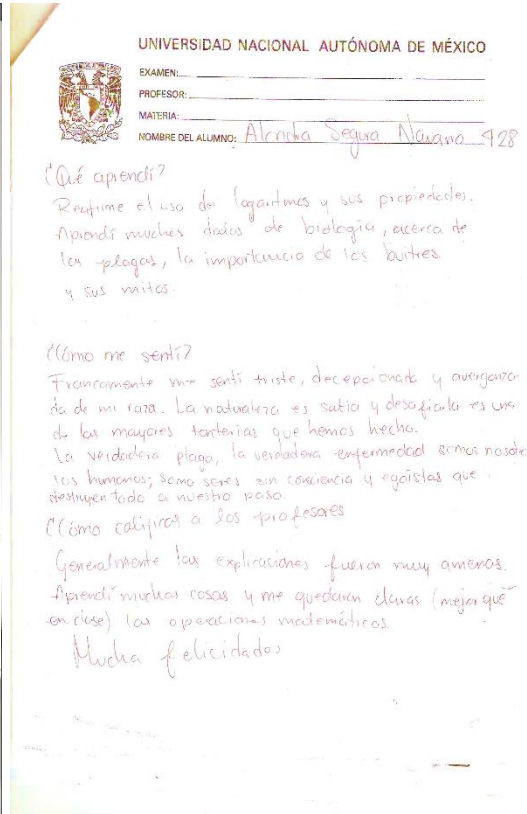 UNIVERSIDAD NACIONAL AUTÓNOMA DE MÉXICO
EXAMEN:
PROFESOR:
MATERIA:
NOMBRE DEL ALUMNO: Segura 428
¿Qué aprendí?
Reafirme el uso de logaritmos y sus propiedades.
Aprendí muchos datos de biología, acerca de
las plagas, la importancia de los buitres
y sus mitos.
¿Cómo me sentí?
Francamente me sentí triste, decepcionada y avergonza-
da de mi raza. La naturaleza es sabia y desafiarla es una
de las mayores tonterias que hemos hecho.
La verdadera plaga, la verdadera enfermedad somos nosotro
los humanos; somo seres sin conciencia y egoístas que
destruyen todo a nuestro paso.
¿Cómo calificas a los profesores
Generalmente las explicaciones fueron muy amenas.
Aprendí muchas cosas y me quedaron claras (mejor que
en clase) las operaciones matemáticas.
Mucha felicidades